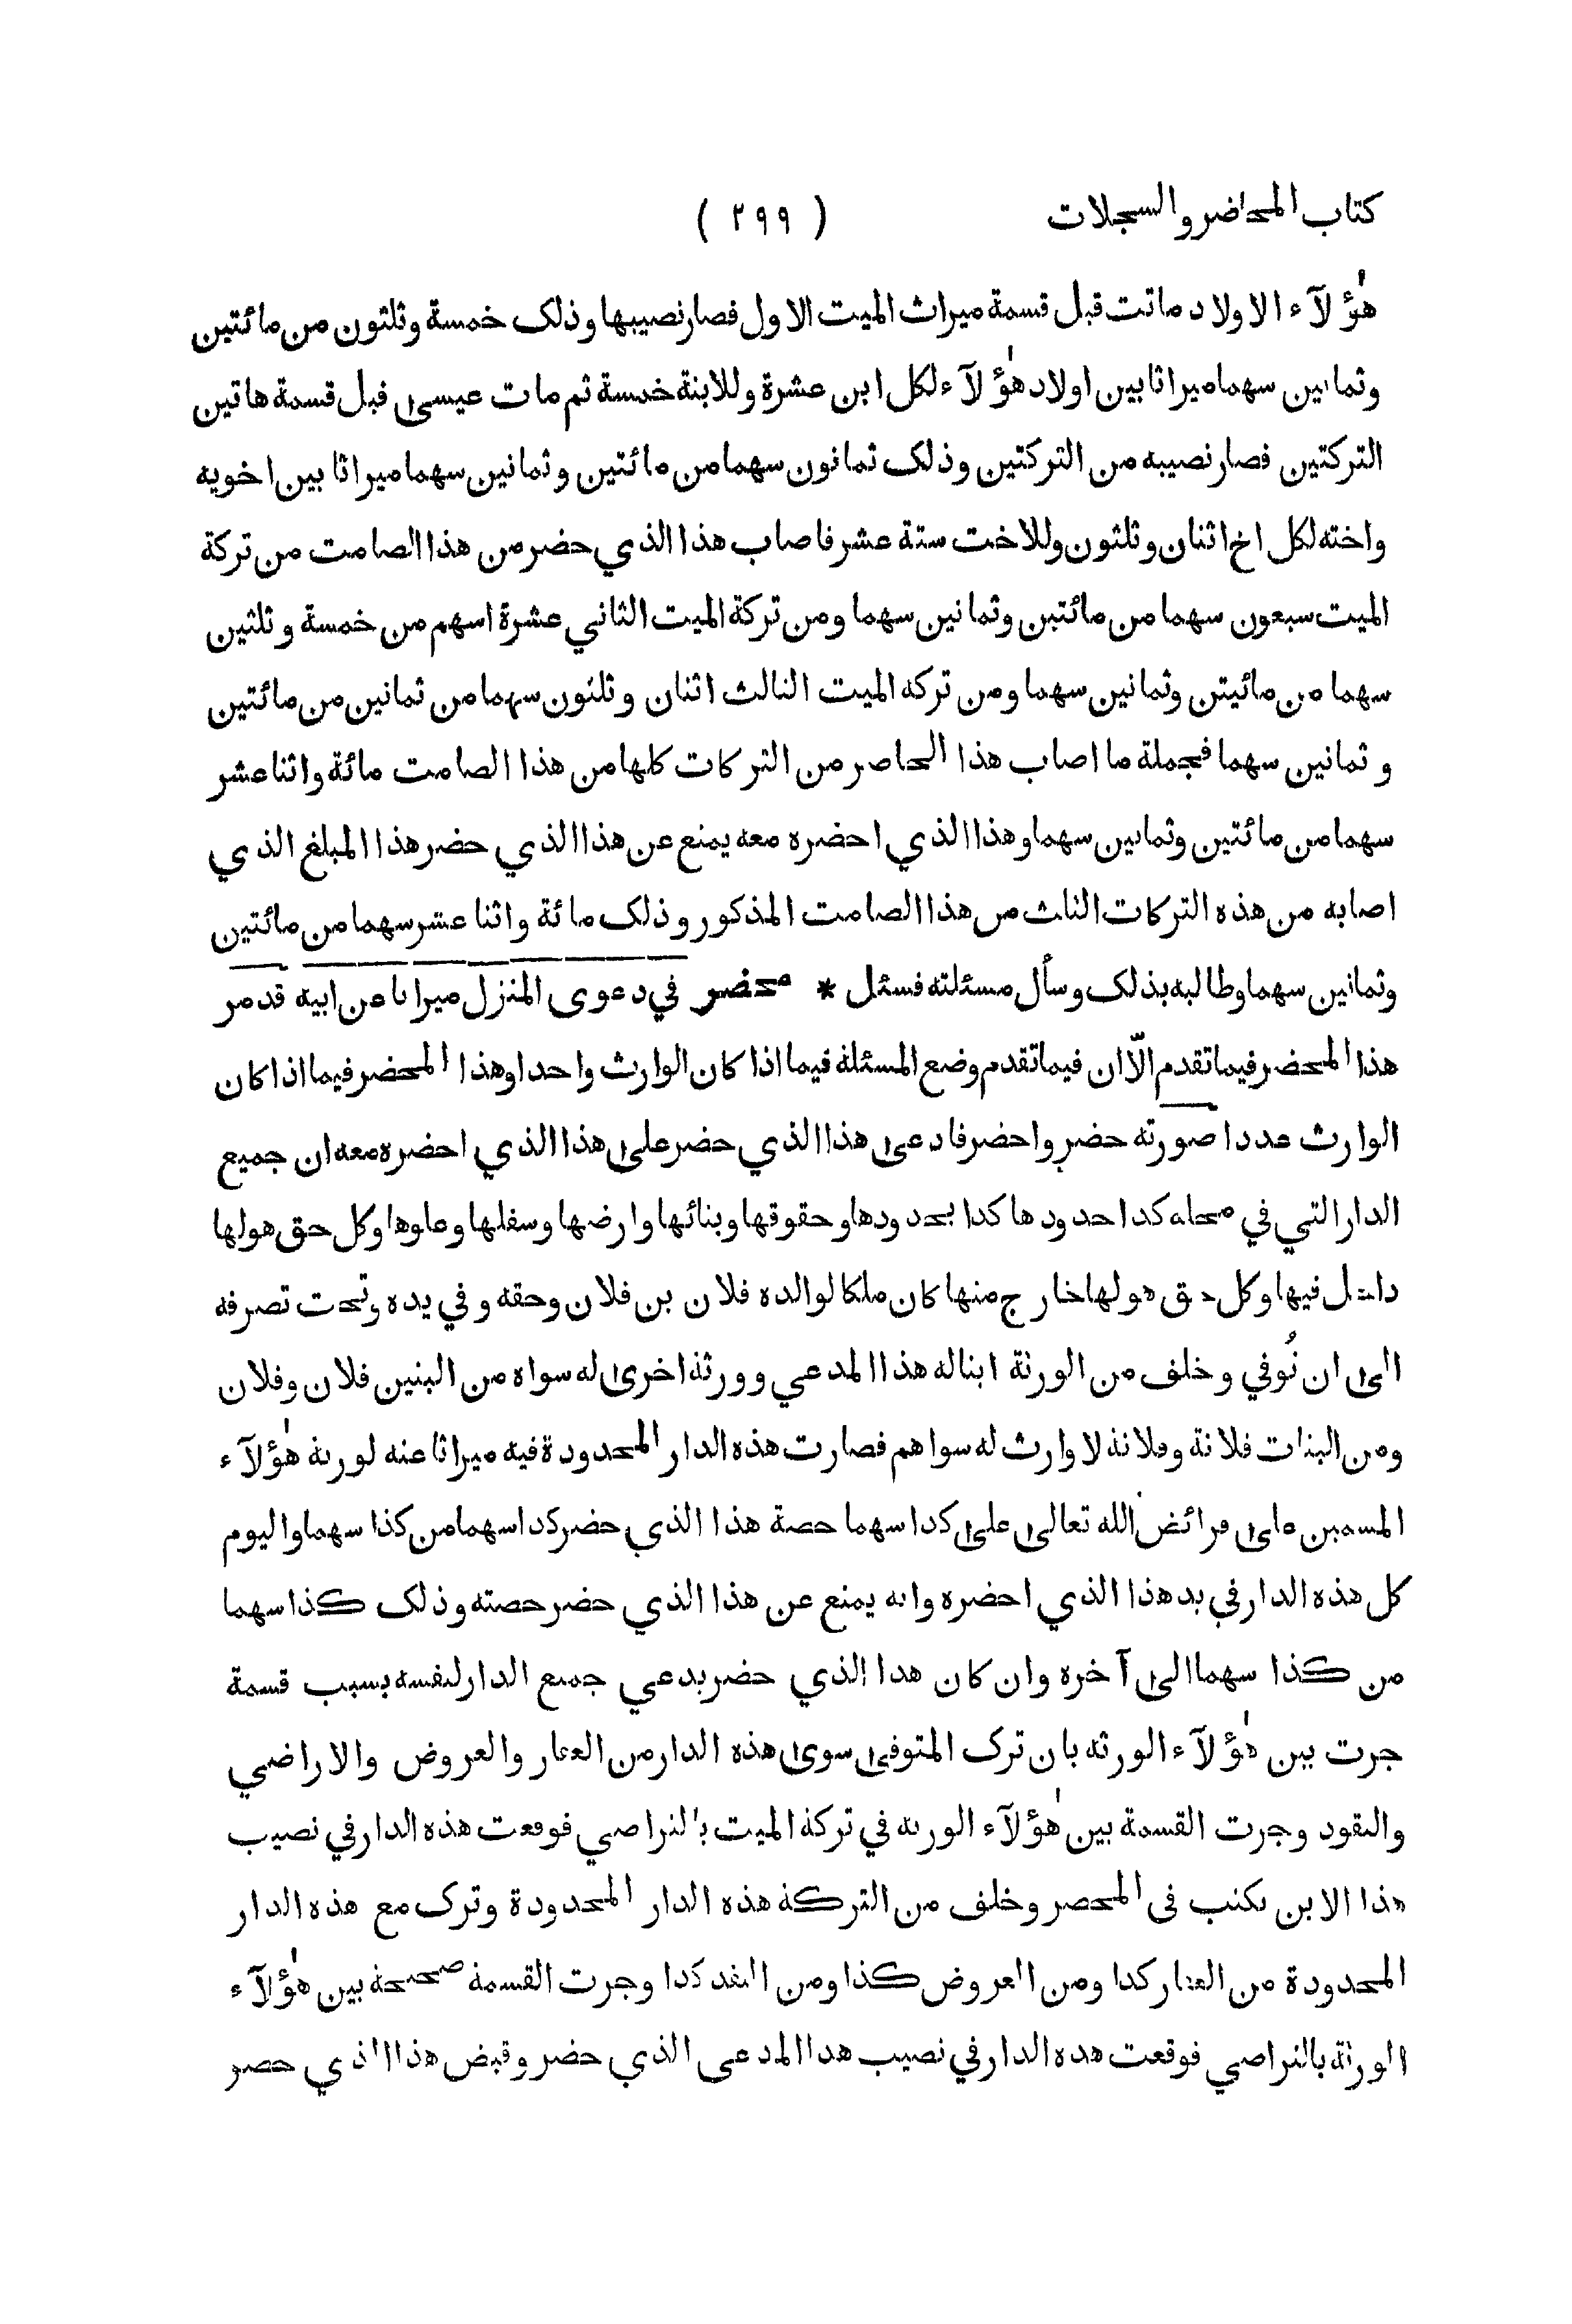 كتاب المحاضر والسجلات ( ٢٩٩ )
هؤلآء الاولاد ماتت قبل قسمة ميراث الميت الاول فصار نصيبها وذلك خمسة وثلثون من مائتين
وثمانين سهما ميراثا بين اولاد هؤلآء لكل ابن عشرة وللابنة خمسة ثم مات عيسى قبل قسمة هاتين
التركتين فصار نصيبه من التركتين وذلك ثمانون سهما من مائتين وثمانين سهما ميراثا بين اخويه
واخته لكل اخ اثنان وثلثون وللاخت ستة عشر فاصاب هذا الذي حضر من هذا الصامت من تركة
الميت سبعون سهما من مائتين وثمانين سهما ومن تركة الميت الثاني عشرة اسهم من خمسة وثلثين
سهما من مائيتن وثمانين سهما ومن تركه الميت الثالث اثنان وثلثون سهما من ثمانين من مائتين
وثمانين سهما فجملة ما اصاب هذا الحاضر من التركات كلها من هذا الصامت مائة واثنا عشر
سهما من مائتين وثمانين سهما وهذا الذي احضره معه يمنع عن هذا الذي حضر هذا المبلغ الذي
اصابه من هذه التركات الثلث من هذا الصامت المذكور وذلك مائة واثنا عشر سهما من مائتين
وثمانين سهما وطالبه بذلك وسأل مسئلته فسئل * محضر في دعوى المنزل ميراثا عن ابيه قد مر
هذا المحضر فيما تقدم الّا ان فيما تقدم وضع المسئلة فيما اذا كان الوارث واحدا وهذا المحضر فيما اذا كان
الوارث عددا صورته حضر واحضر فادعى هذا الذي حضر على هذا الذي احضره معه ان جميع
الدار التي في محله كذا حدودها كذا بحدودها وحقوقها وبنائها وارضها وسفلها وعلوها وكل حق هو لها
داخل فيها وكل حق هو لها خارج منها كان ملكا لوالده فلان بن فلان وحقه وفي يده وتحت تصرفه
الى ان تُوفي وخلف من الورثة ابنا له هذا المدعي وورثة اخرى له سواه من البنين فلان وفلان
ومن البنات فلانة وفلانة لا وارث له سواهم فصارت هذه الدار المحدودة فيه ميراثا عنه لورثة هؤلآء
المسمين على فرائض الله تعالى على كذا سهما حصة هذا الذي حضر كذا سهما من كذا سهما واليوم
كل هذه الدار في يد هذا الذي احضره وانه يمنع عن هذا الذي حضر حصته وذلك كذا سهما
من كذا سهما الى آخره وان كان هذا الذي حضر يدعي جميع الدار لنفسه بسبب قسمة
جرت بين هؤلآء الورثه بان ترك المتوفى سوى هذه الدار من العقار والعروض والاراضي
والنقود وجرت القسمة بين هؤلآء الورثه في تركة الميت بالتراضي فوقعت هذه الدار في نصيب
هذا الابن يكتب فى المحضر وخلف من التركة هذه الدار المحدودة وترك مع هذه الدار
المحدودة من العقار كذا ومن العروض كذا ومن النقد كذا وجرت القسمة صحيحة بين هؤلآء
الورثه بالتراضي فوقعت هذه الدار في نصيب هذا المدعى الذي حضر وقبض هذا الذي حضر